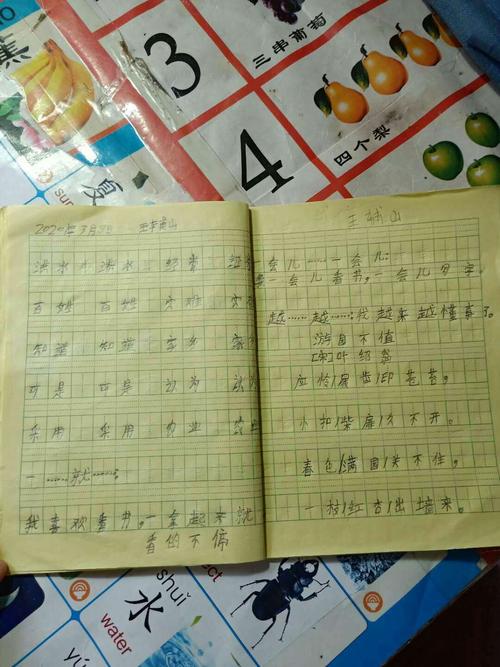 蕉
3
三串葡萄
4
四个梨
夏
2020年3月8日
洪水 洪水 经常 经常
百姓 百姓 灾难 灾难
知道 知道 家乡 家乡
可是 可是 认为 认为
采用 采用 农业 农业
一……就……。
我喜欢看书,一拿起来就
看的不停
一会儿……一会儿:
一会儿看书,一会儿写字。
越……越……:我越来越懂事了。
游园不值
[宋]叶绍翁
应怜/屐齿/印苍苔,
小扣/柴扉/久不开。
春色/满园/关不住,
一枝/红杏/出墙来。
shuǐ
水
water